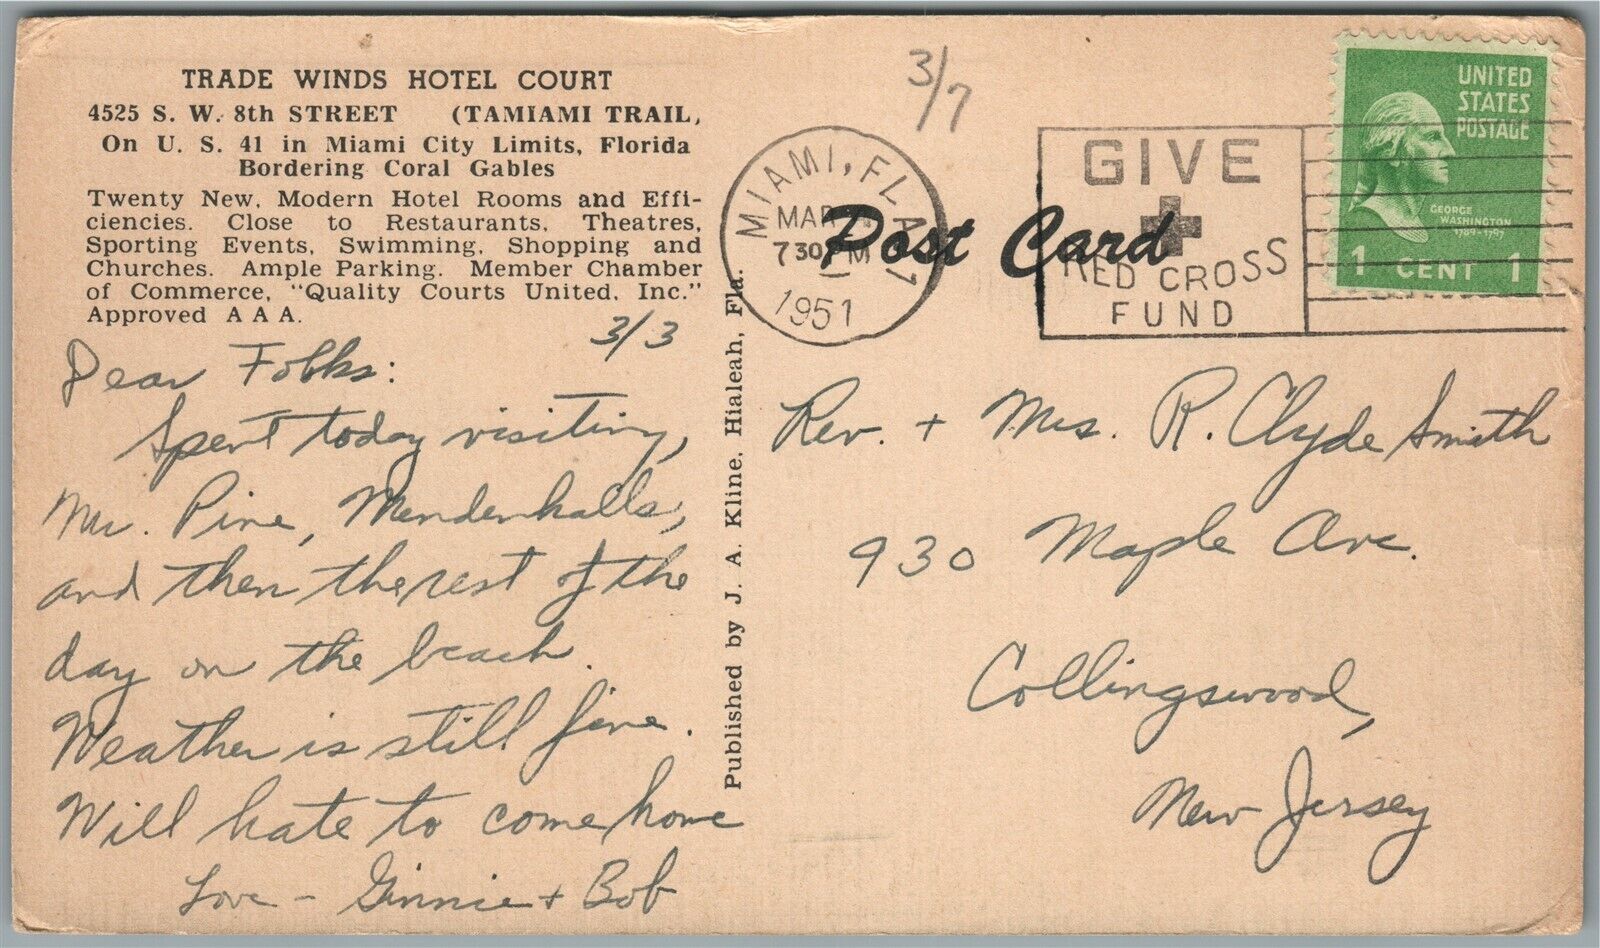 TRADE WINDS HOTEL COURT
4525 S. W. 8th STREET (TAMIAMI TRAIL,
On U. S. 41 in Miami City Limits, Florida
Bordering Coral Gables
Twenty New, Modern Hotel Rooms and Effi-
ciencies. Close to Restaurants, Theatres,
Sporting Events, Swimming, Shopping and
Churches. Ample Parking. Member Chamber
of Commerce, "Quality Courts United, Inc."
Approved A A A.
3/3
Dear Folks:
Spent today visiting,
Mr. Pine, Mendenhalls,
and then the rest of the
day on the beach.
Weather is still fine.
Will hate to come home
Love - Ginnie + Bob
Published by J. A. Kline, Hialeah, Fla.
3/7
MIAMI, FLA.
MAR
7 30 PM
1951
Post Card
GIVE
RED CROSS
FUND
UNITED
STATES
POSTAGE
GEORGE
WASHINGTON
1789-1797
1 CENT 1
Rev. + Mrs. R. Clyde Smith
930 Maple Ave.
Collingswood,
New Jersey